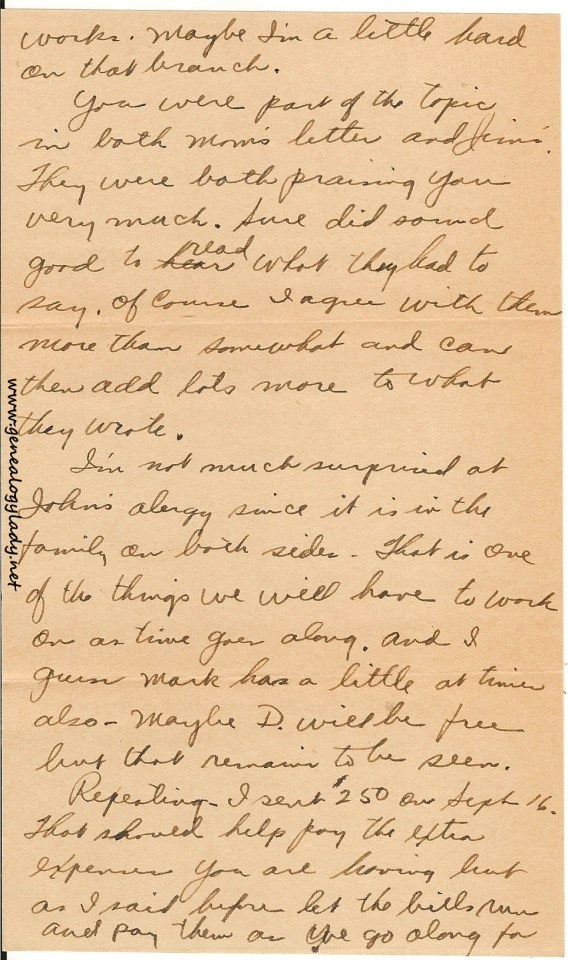 works. Maybe I'm a little hard
on that branch.
You were part of the topic
in both Mom's letter and Jim's.
They were both praising you
very much. Sure did sound
good to hear read what they had to
say. Of course I agree with them
more than somewhat and can
then add lots more to what
they wrote.
I'm not much surprised at
John's alergy since it is in the
family on both sides - That is one
of the things we will have to work
on as time goes along. And I
guess Mark has a little at times
also - Maybe D. will be free
but that remains to be seen.
Repeating - I sent $250 on Sept 16.
That should help pay the extra
expenses you are having but
as I said before let the bills run
and pay them as we go along for
www.genealogylady.net